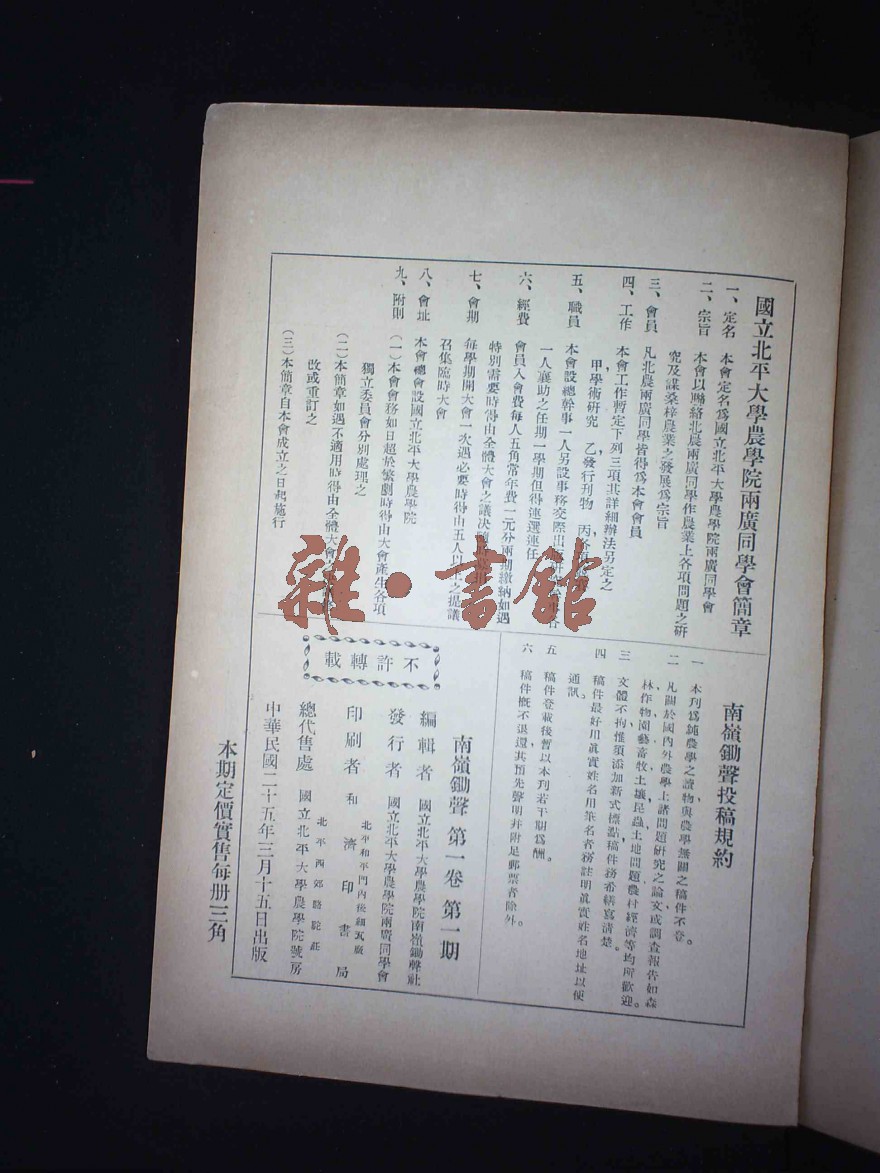 國立北平大學農學院兩廣同學會簡章
一、定名 本會定名爲國立北平大學農學院兩廣同學會
二、宗旨 本會以聯絡北農兩廣同學作農業上各項問題之研
究及謀桑梓農業之發展爲宗旨
三、會員 凡北農兩廣同學皆得爲本會會員
四、工作 本會工作暫定下列三項其詳細辦法另定之
甲，學術研究 乙，發行刊物 丙，
五、職員 本會設總幹事一人另設事務交際出
一人襄助之任期一學期但得連選連任
六、經費 會員入會費每人五角常年費一元分兩期繳納如遇
特別需要時得由全體大會之議决
七、會期 每學期開大會一次遇必要時得由五人以上之提議
召集臨時大會
八、會址 本會總會設國立北平大學農學院
九、附則 （一）本會會務如日趨於繁劇時得由大會產生各項
獨立委員會分別處理之
（二）本簡章如遇不適用時得由全體大會
改或重訂之
（三）本簡章自本會成立之日起施行
南嶺鋤聲投稿規約
一 本刊爲純農學之讀物與農學無關之稿件不登。
二 凡關於國內外農學上諸問題研究之論文或調查報告如森
林、作物、園藝、畜牧、土壤、昆蟲、土地問題、農村經濟等均所歡迎。
三 文體不拘惟須添加新式標點稿件務希繕寫清楚。
四 稿件最好用眞實姓名用筆名者務註明眞實姓名地址以便
通訊。
五 稿件登載後暫以本刊若干期爲酬。
六 稿件概不退還其預先聲明并附足郵票者除外。
不許轉載
南嶺鋤聲 第一卷 第一期
編輯者 國立北平大學農學院南嶺鋤聲社
發行者 國立北平大學農學院兩廣同學會
北平和平門內後細瓦廠
印刷者 和濟印書局
北平西郊駱駝莊
總代售處 國立北平大學農學院號房
中華民國二十五年三月十五日出版
本期定價實售每册三角
雜·書館